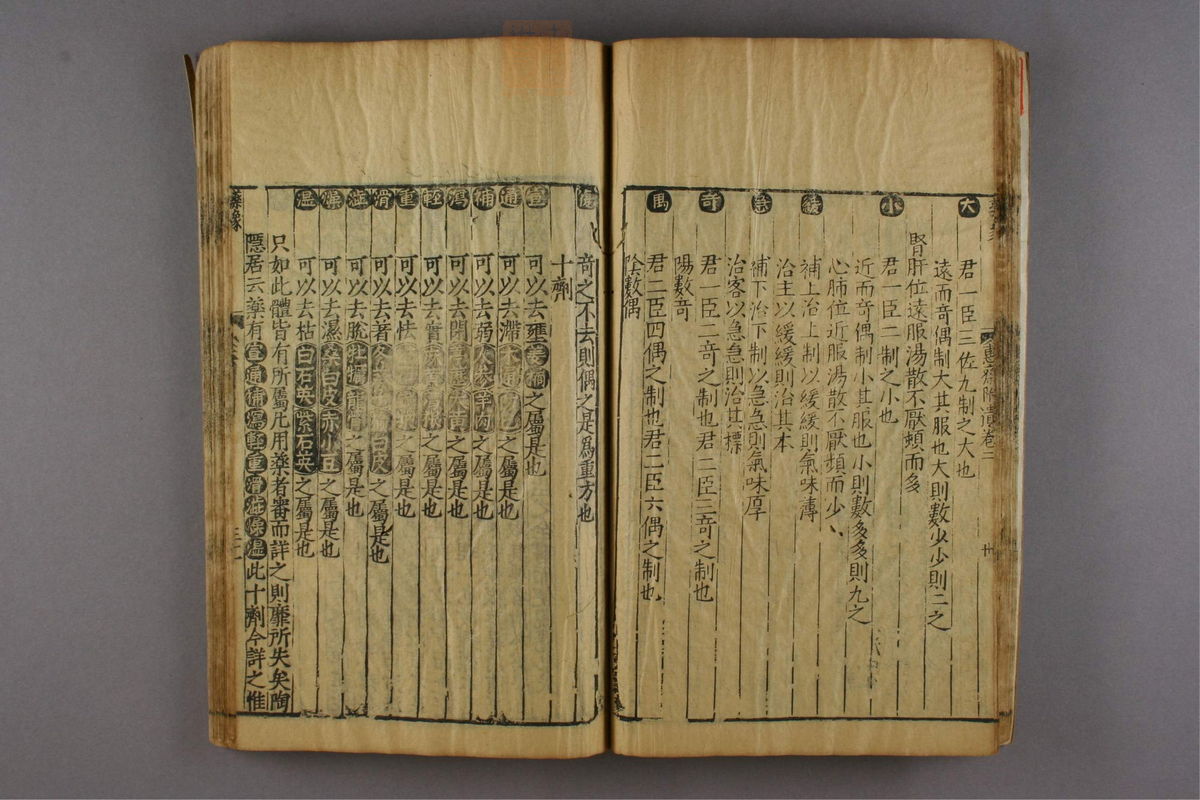 大
君一臣三佐九制之大也
遠而奇偶制大其服也大則數少少則二之
腎肝位遠服湯散不厭頻而多
小
君一臣二制之小也
近而奇偶制小其服也小則數多多則九之
心肺位近服湯散不厭頻而少
緩
補上治上制以緩緩則氣味薄
治主以緩緩則治其本
急
補下治下制以急急則氣味厚
治客以急急則治其標
奇
君一臣二奇之制也君二臣三奇之制也
陽數奇
偶
君二臣四偶之制也君二臣六偶之制也
陰數偶
復
奇之不去則偶之是爲重方也
十劑
宣
可以去壅姜橘之屬是也
通
可以去滯木通防己之屬是也
補
可以去弱人參羊肉之屬是也
瀉
可以去閉葶藶大黃之屬是也
輕
可以去實麻黃葛根之屬是也
重
可以去怯之屬是也
滑
可以去著冬葵榆白皮之屬是也
澁
可以去脫牡蠣龍骨之屬是也
燥
可以去濕桑白皮赤小豆之屬是也
溫
可以去枯白石英紫石英之屬是也
只如此體皆有所屬凡用藥者審而詳之則靡所失矣陶
隱居云藥有宣通補瀉輕重滑澁燥溫此十劑今詳之惟